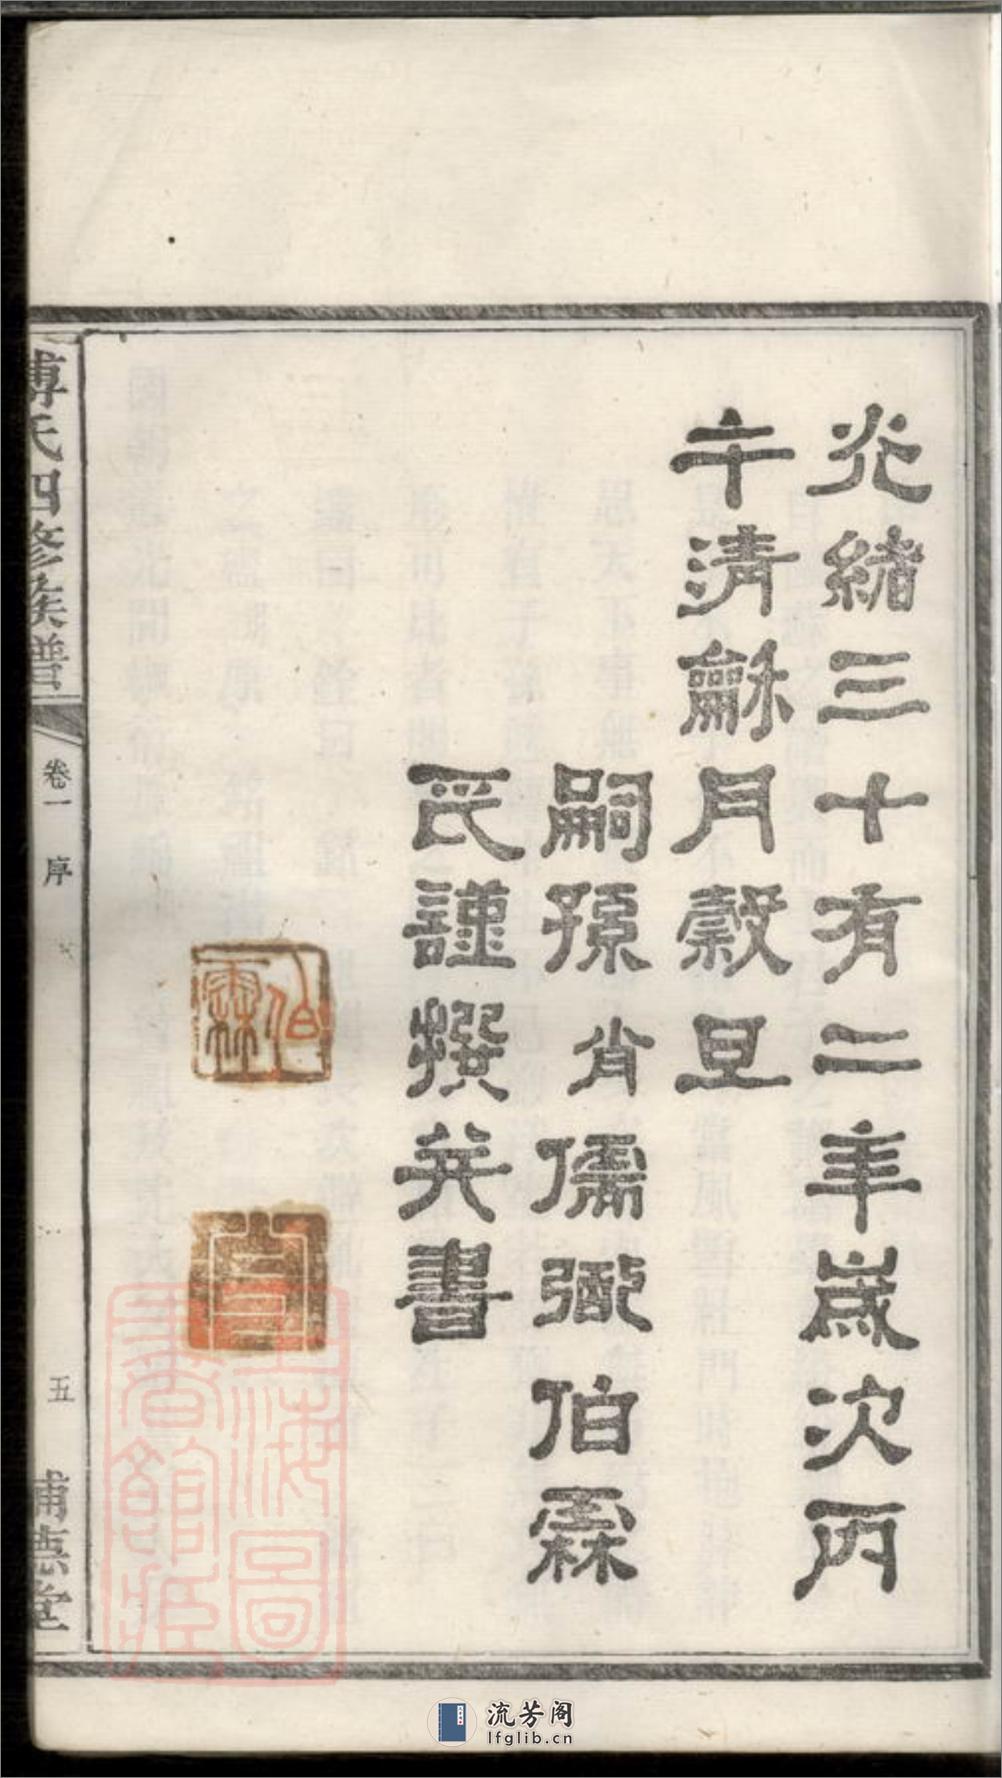 光緒三十有二年歲次丙
午清龢月穀旦
嗣孫少儒弼伯霖
氏謹撰并書
伯霖
傅氏四修族譜
卷一 序
五
上海圖書館藏
流芳阁
lfglib.cn